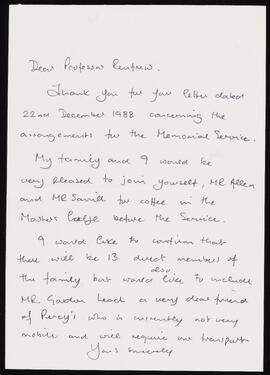 Dear Professor Renfrew.
Thank you for you letter dated
22nd December 1988 concerning the
arrangements for the Memorial Service.
My family and I would be
very pleased to join yourself, MR Allen
and MR Savill for coffee in the
Masters Lodge before the Service.
I would like to confirm that
there will be 13 direct members of
the family but would also like to include
MR Gordon Lead a very dear friend
of Percy's who is currently not very
mobile and will require our transport
Yours sincerely